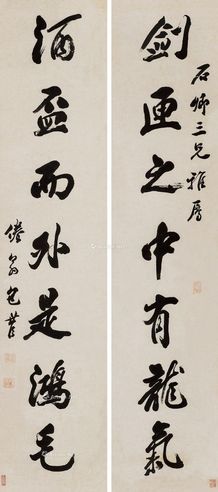 石卿三兄雅属
剑匣之中有龍氣
酒盃而外是鴻毛
倦翁包世臣